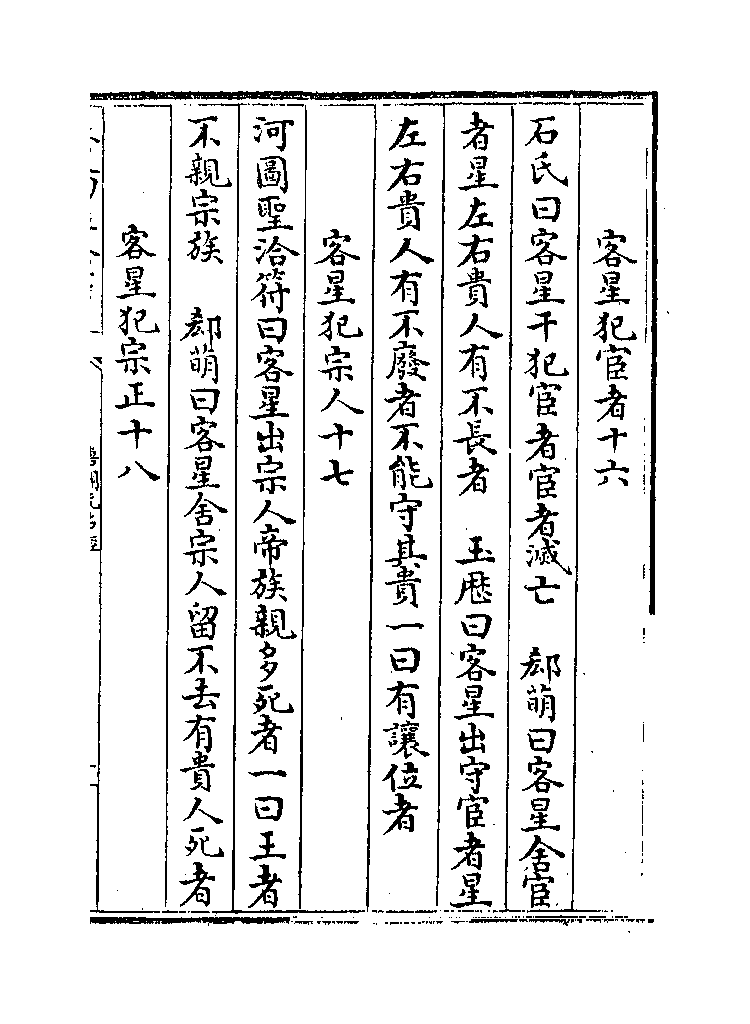 客星犯宦者十六
石氏曰客星干犯宦者宦者滅亡　郗萌曰客星舍宦
者星左右貴人有不長者　玉歴曰客星出守宦者星
左右貴人有不廢者不能守其貴一曰有讓位者
客星犯宗人十七
河圖聖洽符曰客星出宗人帝族親多死者一曰王者
不親宗族　郗萌曰客星舍宗人留不去有貴人死者
客星犯宗正十八